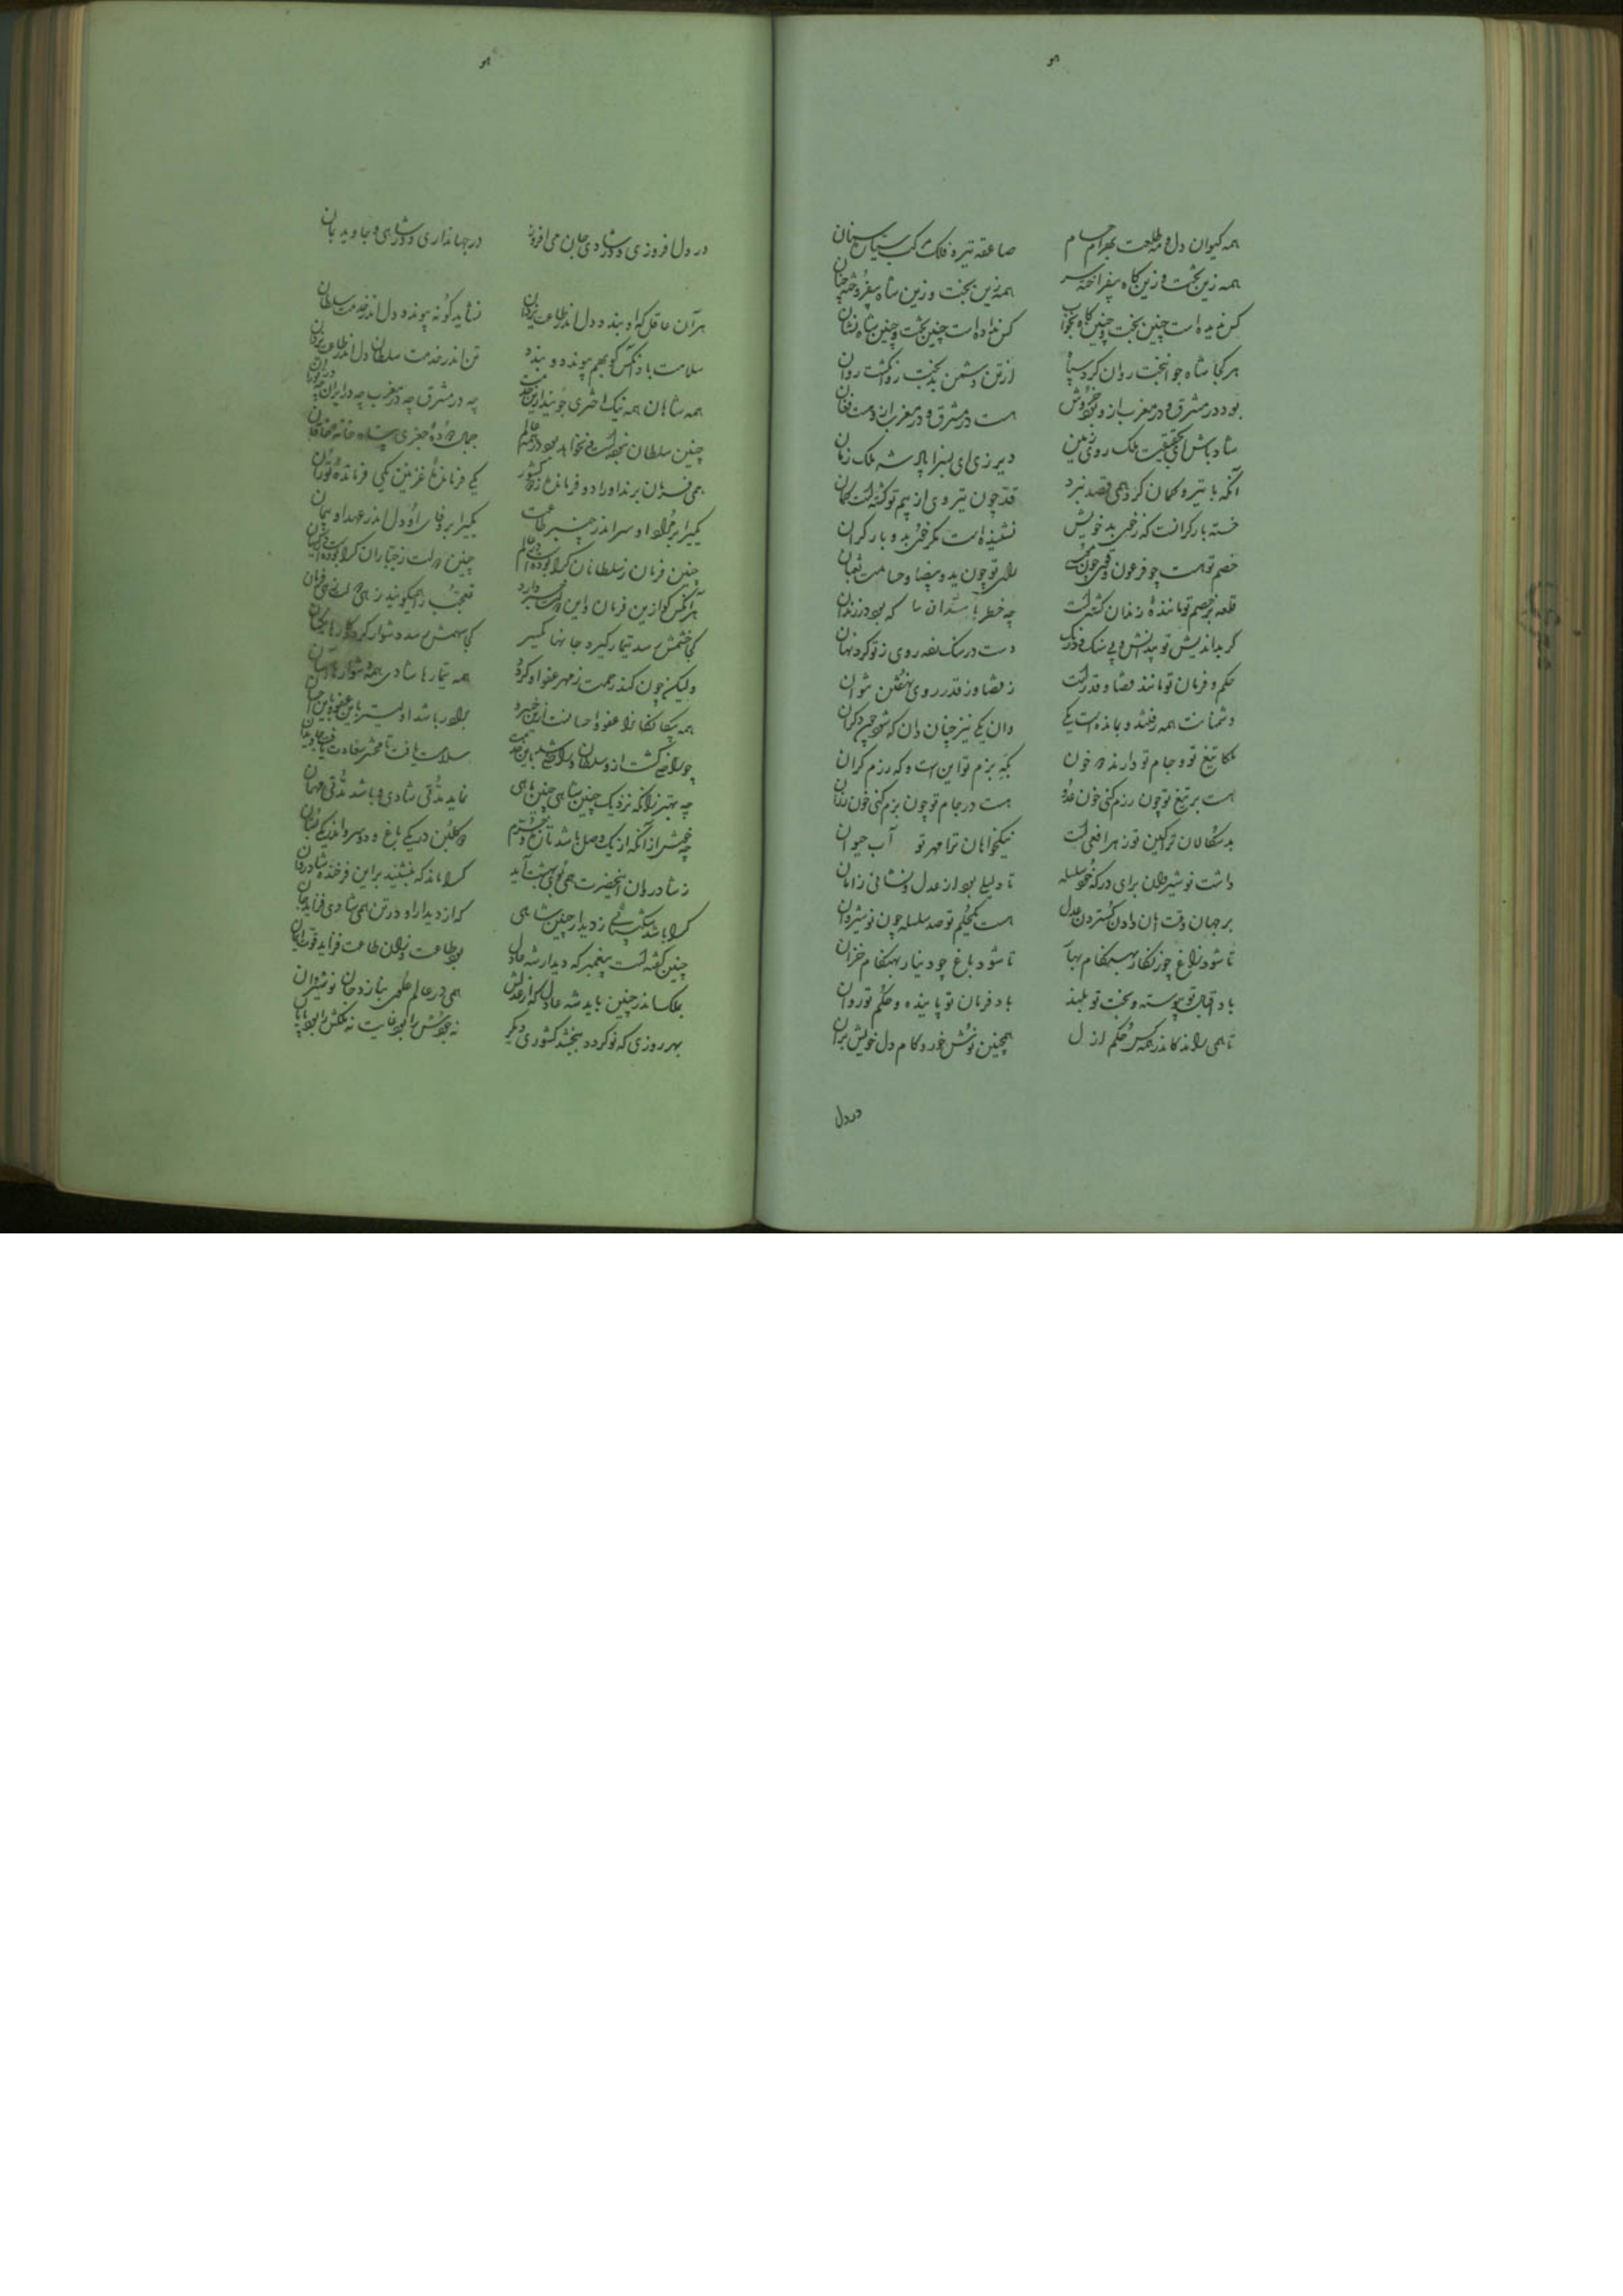 همه کیوان دل و مه طلعت و بهرام حسام صاعقه تیر و فلک مرکب و سیاره سنان
همه زین تخت و زین گاه بیفراخته سر همه زین بخت و زین شاه بیفروخته جان
کس ندیده است چنین بخت و چنین گاه بخواب کس نداده است چنین تخت و چنین شاه نشان
هر کجا شاه جوانبخت روان کرد سپاه از تن دشمن بدبخت روان گشت روان
بود در مشرق و در مغرب ازو بود خروش هست در مشرق و در مغرب ازو هست فغان
شاد باش ای بحقیقت ملک روی زمین دیر زی ای بسزا پادشه ملک زمان
آنکه با تیر و کمان کرد همی قصد نبرد قد چون تیر وی از بیم تو گشته است کمان
خسته بار گرانست که زخمی بد خویش نشنیده است مگر خوی بد و بار گران
خصم تو هست چو فرعون و تویی چون موسی رای تو چون ید بیضا و حسامت ثعبان
قلعه بر خصم تو مانندهٔ زندان گشته است چه خطر باشد آن را که بود در زندان
گر بداندیش تو بیدانش و بی سنگ و درنگ دست در سنگ زند روی ز تو کرد نهان
حکم و فرمان تو مانند قضا و قدر است ز قضا و ز قدر روی نهفتن نتوان
دشمنانت همه رفتند و بمانده است یکی وان یکی نیز چنان دان که شود چون دگران
ملکا تیغ تو و جام تو دارند دو خون گه بزم تو این است و گه رزم تو آن
هست بر تیغ تو چون رزم کنی خون عدو هست در جام تو چون بزم کنی خون رزان
بدسگالان ترا کین تو زهر افعی است نیکخواهان ترا مهر تو آب حیوان
داشت نوشیروان برای در گه خود سلسله تا دلیلی بود از عدل و نشانی ز امان
بر جهان وقت امان دادن و گستردن عدل هست یک حکم تو صد سلسله چون نوشروان
تا شود باغ چو زنگار بهنگام بهار تا شود باغ چو دینار بهنگام خزان
باد اقبال تو پیوسته و بخت تو بلند باد فرمان تو پاینده و حکم تو روان
تا همی راند کاندر همه کس حکم ازل همچنین نوش خور و کام دل خویش بران
در دل
در دل افروزی و در شادی جان می افروز در جهانداری و در شاهی جاوید بمان
هر آن عاقل که او بندد دل اندر طاعت یزدان نشاید گو نه پیوندد دل اندر خدمت سلطان
سلامت باد آنکس کو بهم پیوندد و بندد تن اندر خدمت سلطان دل اندر طاعت یزدان
همه شاهان همه نیک اختری جویند از این خدمت چه در مشرق چه در مغرب چه در ایران چه در توران
چنین سلطان نبوده است و نخواهد بود در عالم
همی فرمان برند او را دو فرمان ده ز دو کشور یکی فرمانده غزنین یکی فرمانده توران
یکی را بر مراد او سر اندر چنبر طاعت یکی را بر وفای او دل اندر عهد و پیمان
چنین فرمان ز سلطانان کرا بوده است در عالم چنین دولت ز جباران کرا بوده است در گیهان
هر آنکس کو ازین فرمان و این دولت خبر دارد تعجب را همی گوید زهی دولت زهی فرمان
کجا خشمش رسد تیمار گیرد جانها یکسر کجا سهمش رسد دشوار گردد کارها یکسان
ولیکن چون کند رحمت ز مهر عفو او گردد همه تیمارها شادی همه دشوارها آسان
چو راضی گشت ازو سلطان و راضی شد باین خدمت
چه بهتر زانکه نزدیک چنین شاهی چنین ماهی نماید مدتی شادی و باشد مدتی مهمان
چه خوشتر از آنکه از یک اصل باشد تازه و خرم دو گلبن در یکی باغ و دو سرو اندر یکی بستان
ز شادروان آن حضرت همی بوی بهشت آید کرا ماند که بنشیند بر این فرخنده شادروان
کرا باشد شکیبایی ز دیدار چنین شاهی که از دیدار او در تن همی شادی فزاید جان
چنین گفته است پیغمبر که دیدار شه عادل بود طاعت وزان طاعت فزاید قوت ایمان
بملک اندر چنین باید شه عادل که از عدلش همی در عالم علوی بنازد جان نوشروان
بهر روزی که نو گردد ببخشد کشوری دیگر نه جودش را بود غایت نه ملکش را بود پایان